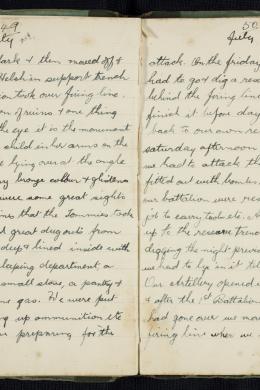 49
July
dark & then moved off &
Welsh in support trench
sion took over firing line.
on of ruins & one thing
the eye it is the monument
child in her arms on the
e lying over at the angle
ry bronze colour & glistens
were some great sights
ins that the Tommies took
d great dugouts from
deep & lined inside with
leeping department, a
small stove, a pantry &
me gas. We were put
ng up ammunition etc
or preparing for the
50
July
attack. On the friday
had to go & dig a rese
behind the firing line
finish it before day
back to our own re
saturday afternoon
we had to attack th
fitted out with bombs.
our battalion were res
job to carry tools etc. A
up to the reserve trench
digging the night previ
we had to lye in it til
Our Artillery opened o
& after the 1st Battalion
had gone over we mov
firing line when we